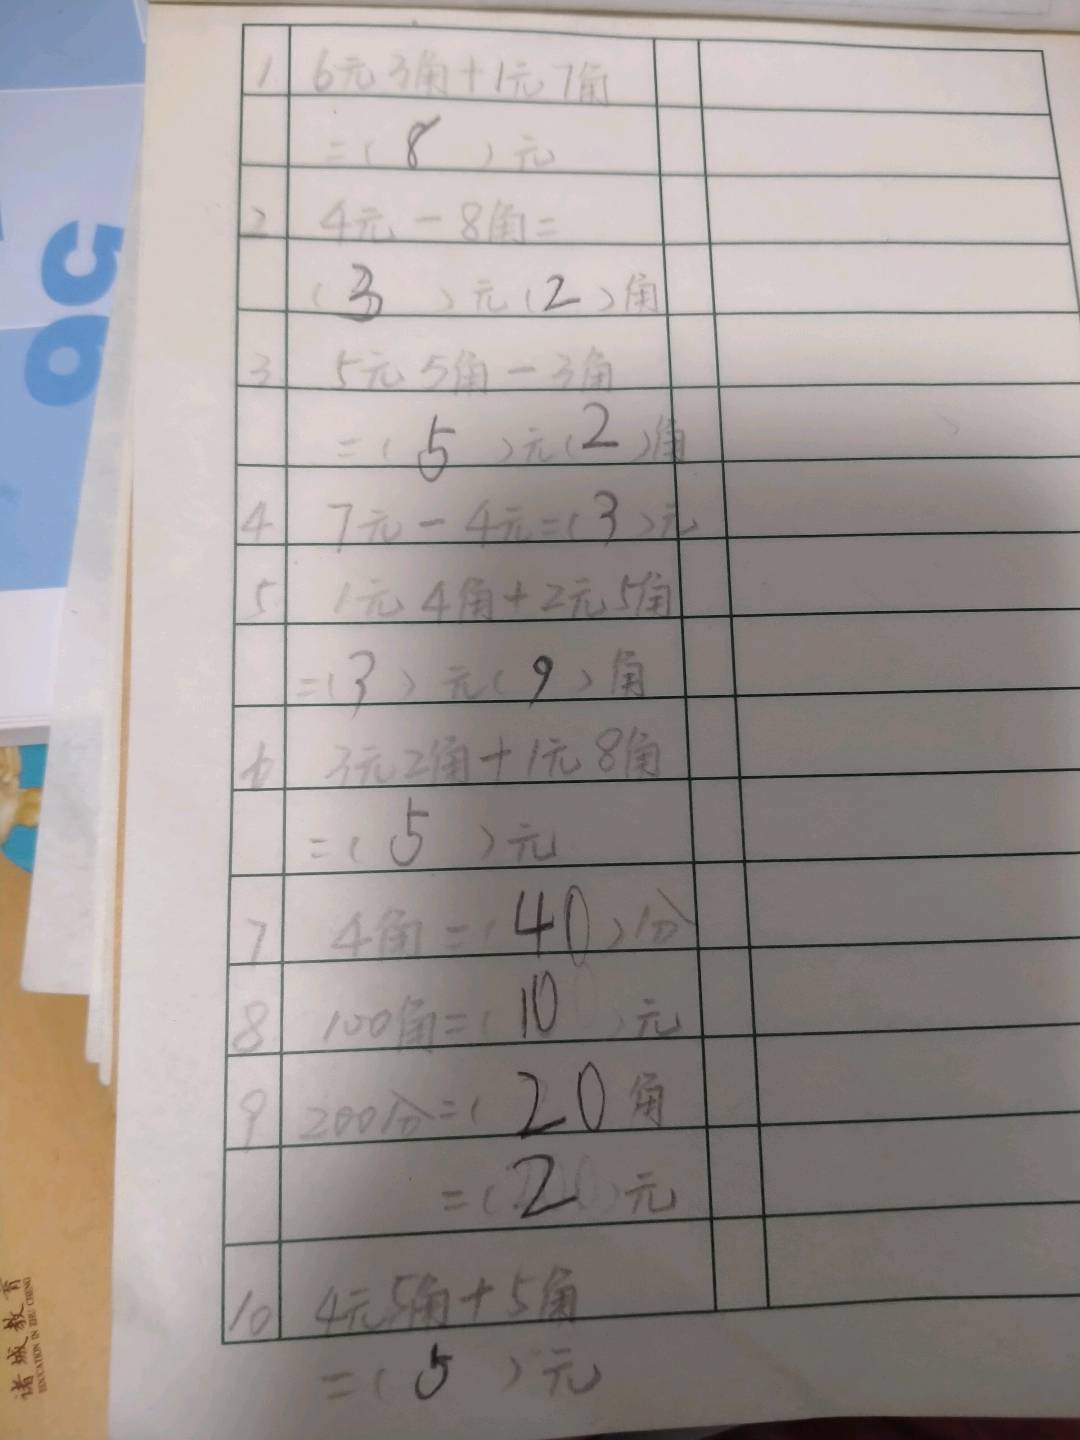 1 6元3角+1元7角
=( 8 )元
2 4元-8角=
( 3 )元( 2 )角
3 5元5角-3角
=( 5 )元( 2 )角
4 7元-4元=( 3 )元
5 1元4角+2元5角
=( 3 )元( 9 )角
6 3元2角+1元8角
=( 5 )元
7 4角=( 40 )分
8 100角=( 10 )元
9 200分=( 20 角
=( 2 )元
10 4元5角+5角
=( 5 )元
诸城教育
EDUCATION IN ZHU CHENG